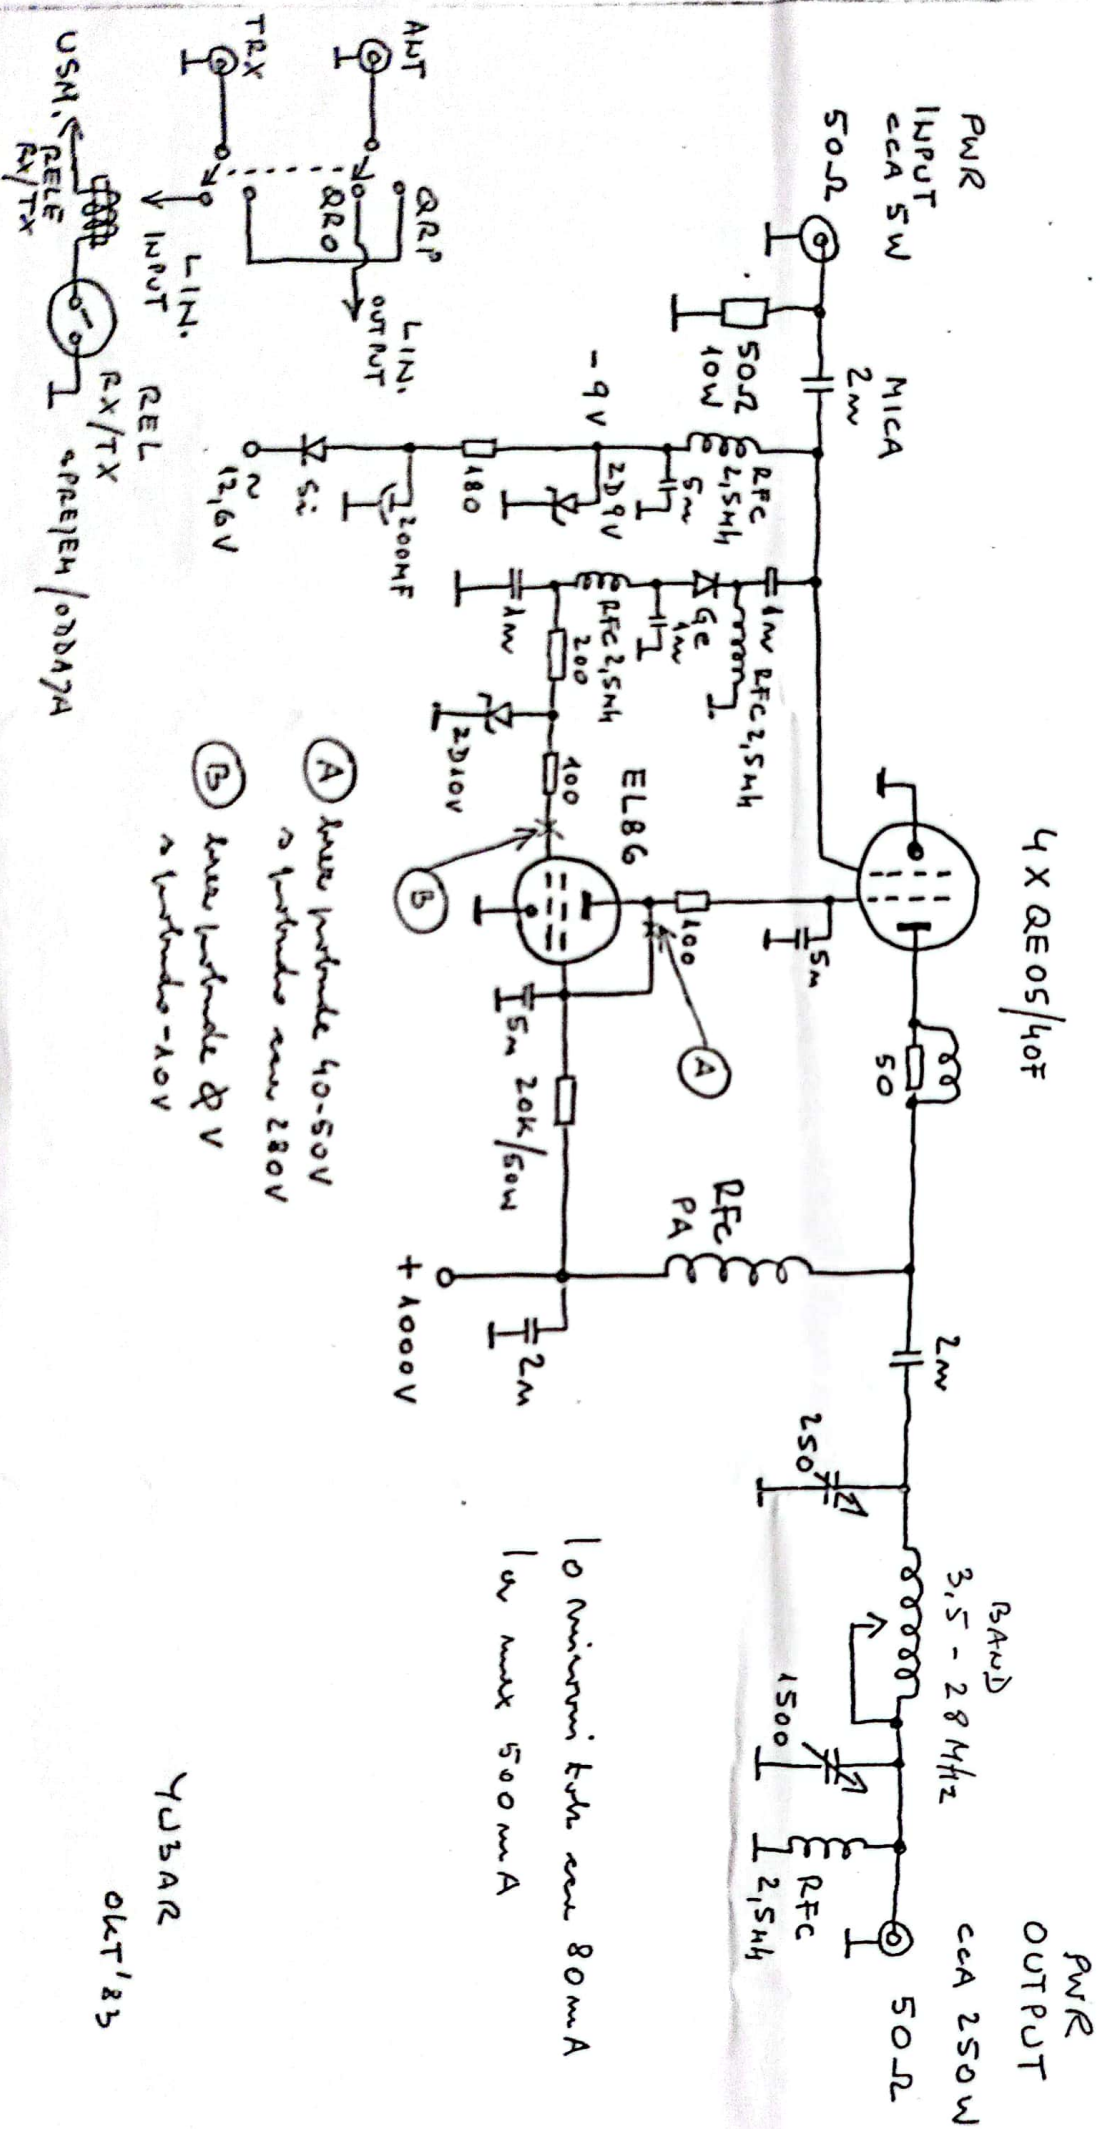 PWR
INPUT
cca 5W
50Ω
MICA
2n
50Ω
10W
RFC
2,5mh
5n
-9V
ZD9V
180
200MF
Si
~
12,6V
1n
RFC 2,5mh
Ge
1n
RFC 2,5mh
1n
200
ZD10V
100
EL86
B
100
A
5n
4 X QE05/40F
50
5n
20K/50W
RFC
PA
+ 1000V
2n
2n
250
BAND
3,5 - 28 MHz
1500
RFC
2,5mh
PWR
OUTPUT
cca 250W
50Ω
ANT
TRX
QRP
QRO
LIN.
OUTPUT
LIN.
INPUT
USM.
RELE
RX/TX
REL
RX/TX
SPREJEM/ODDAJA
A brez pobude 40-50V
s pobudo cca 280V
B brez pobude 0V
s pobudo -10V
Io mirovni tok cca 80mA
Ia max 500mA
YU3AR
OKT'83